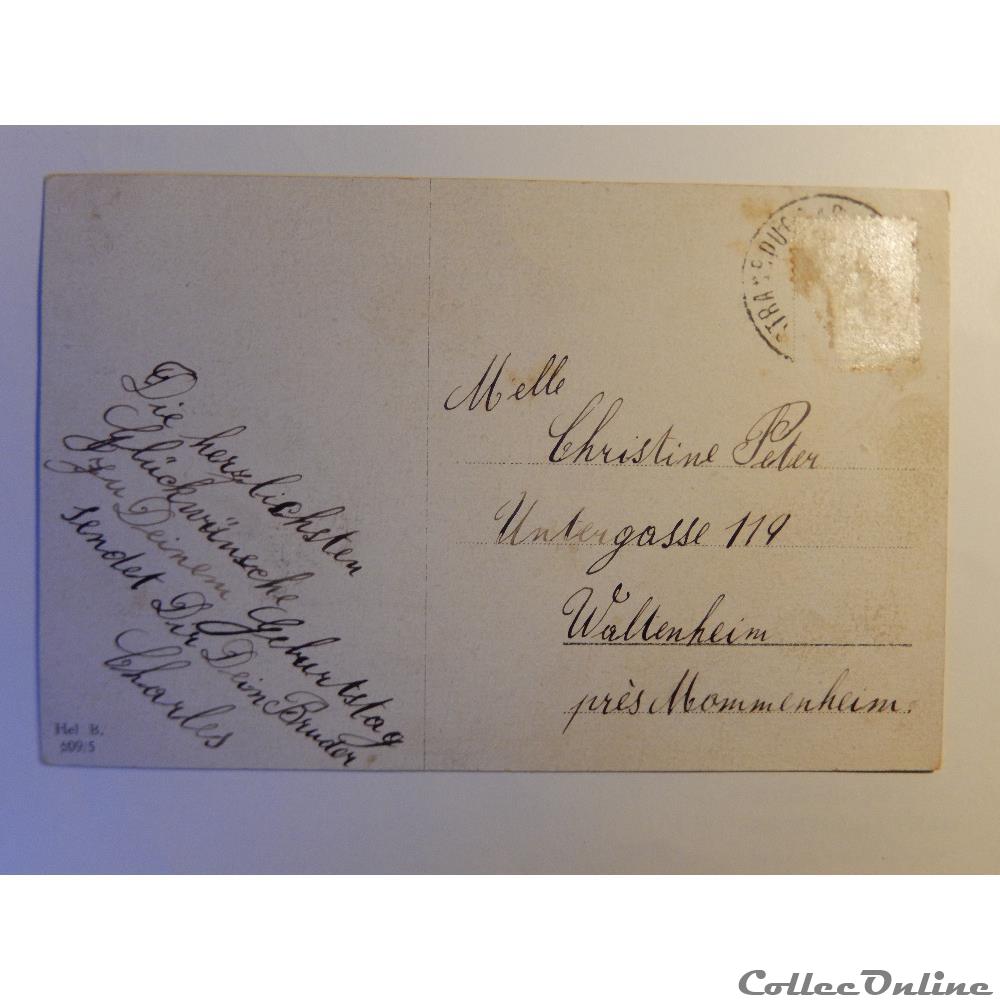 Die herzlichsten
Glückwünsche
zu Deinem Geburtstag
sendet Dir Dein Bruder
Charles
Hel B.
609/5
Melle
Christine Peter
Untergasse 119
Waltenheim
près Mommenheim.
CollecOnline